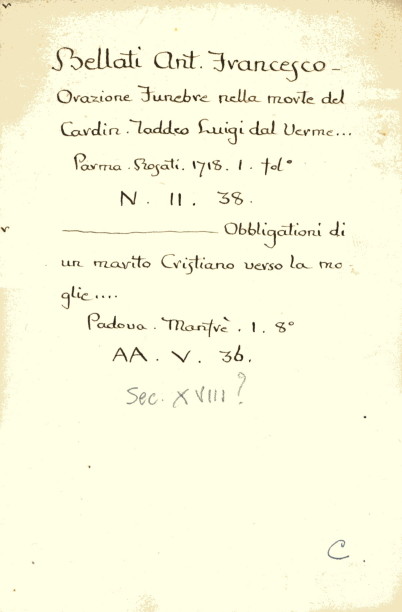 Bellati Ant. Francesco -
Orazione Funebre nella morte del
Cardin. Taddeo Luigi dal Verme...
Parma. Rosati. 1718. 1. fol°
N. II. 38.
Obbligationi di
un marito Cristiano verso la mo-
glie....
Padova. Manfrè. 1. 8°
AA. V. 36.
Sec. XVIII?
C